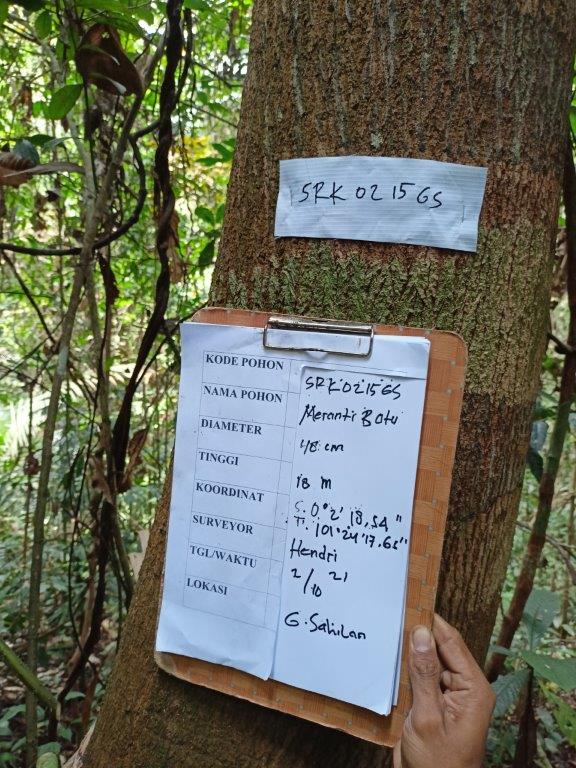 SRK 02 15 GS
KODE POHON SRK 02 15 GS
NAMA POHON Meranti Batu
DIAMETER 48 cm
TINGGI 18 m
KOORDINAT S. 0°2' 18,54"
T. 101°24'17,65"
SURVEYOR Hendri
TGL/WAKTU 2/10 21
LOKASI G. Sahilan